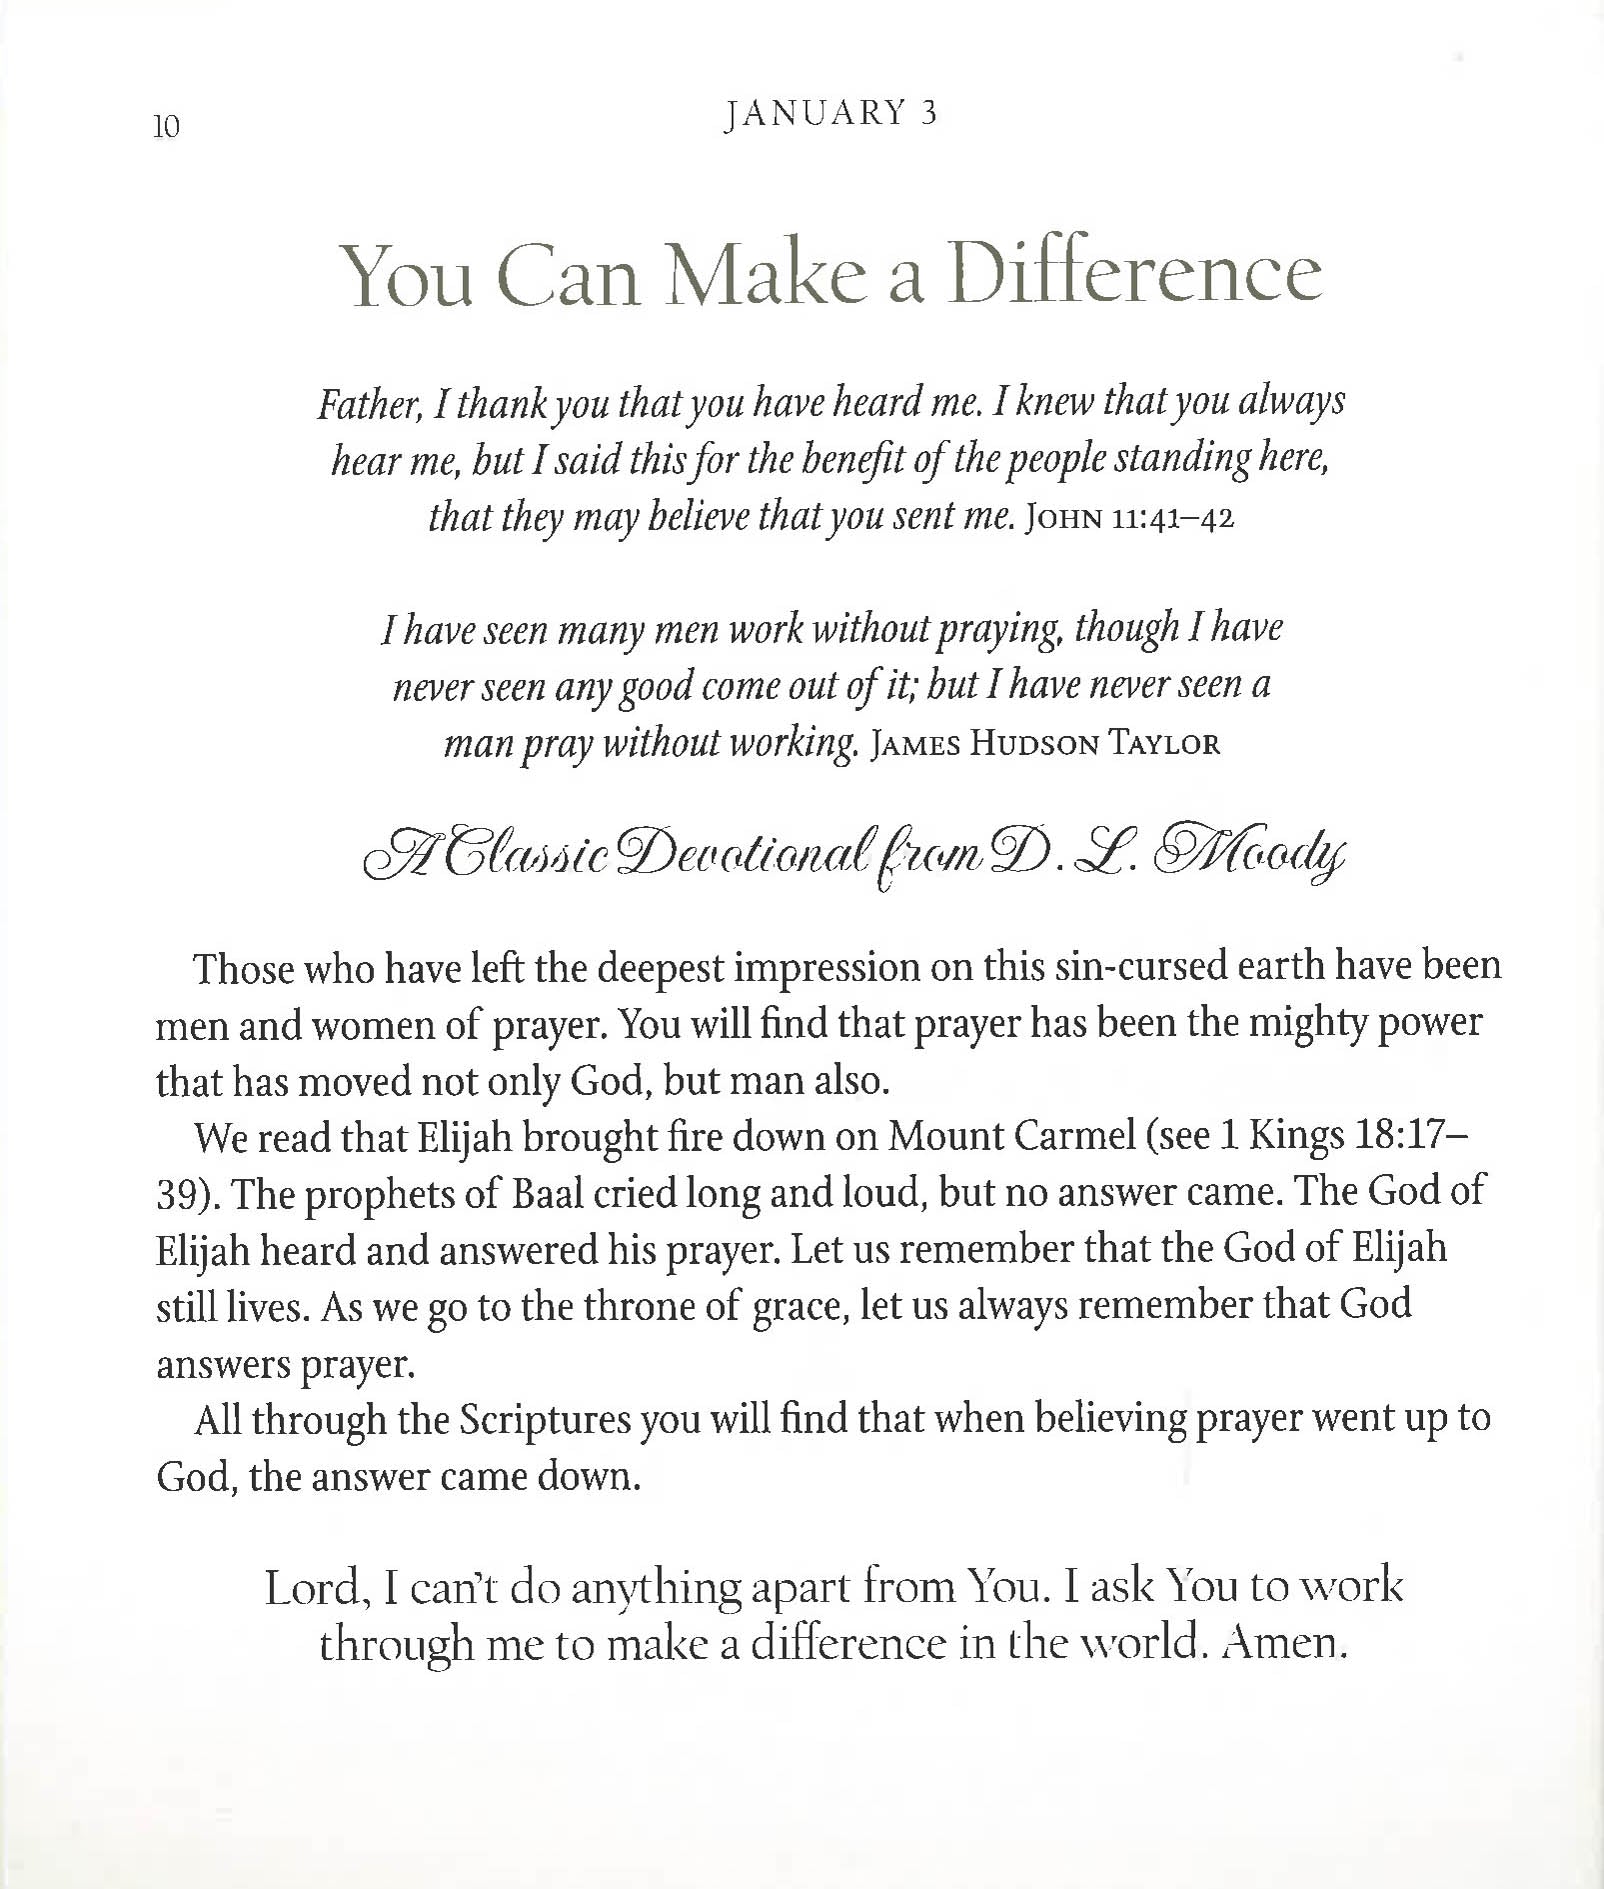 10
JANUARY 3
You Can Make a Difference
Father, I thank you that you have heard me. I knew that you always
hear me, but I said this for the benefit of the people standing here,
that they may believe that you sent me. JOHN 11:41–42
I have seen many men work without praying, though I have
never seen any good come out of it; but I have never seen a
man pray without working. JAMES HUDSON TAYLOR
A Classic Devotional from D. L. Moody
Those who have left the deepest impression on this sin-cursed earth have been
men and women of prayer. You will find that prayer has been the mighty power
that has moved not only God, but man also.
We read that Elijah brought fire down on Mount Carmel (see 1 Kings 18:17–
39). The prophets of Baal cried long and loud, but no answer came. The God of
Elijah heard and answered his prayer. Let us remember that the God of Elijah
still lives. As we go to the throne of grace, let us always remember that God
answers prayer.
All through the Scriptures you will find that when believing prayer went up to
God, the answer came down.
Lord, I can't do anything apart from You. I ask You to work
through me to make a difference in the world. Amen.